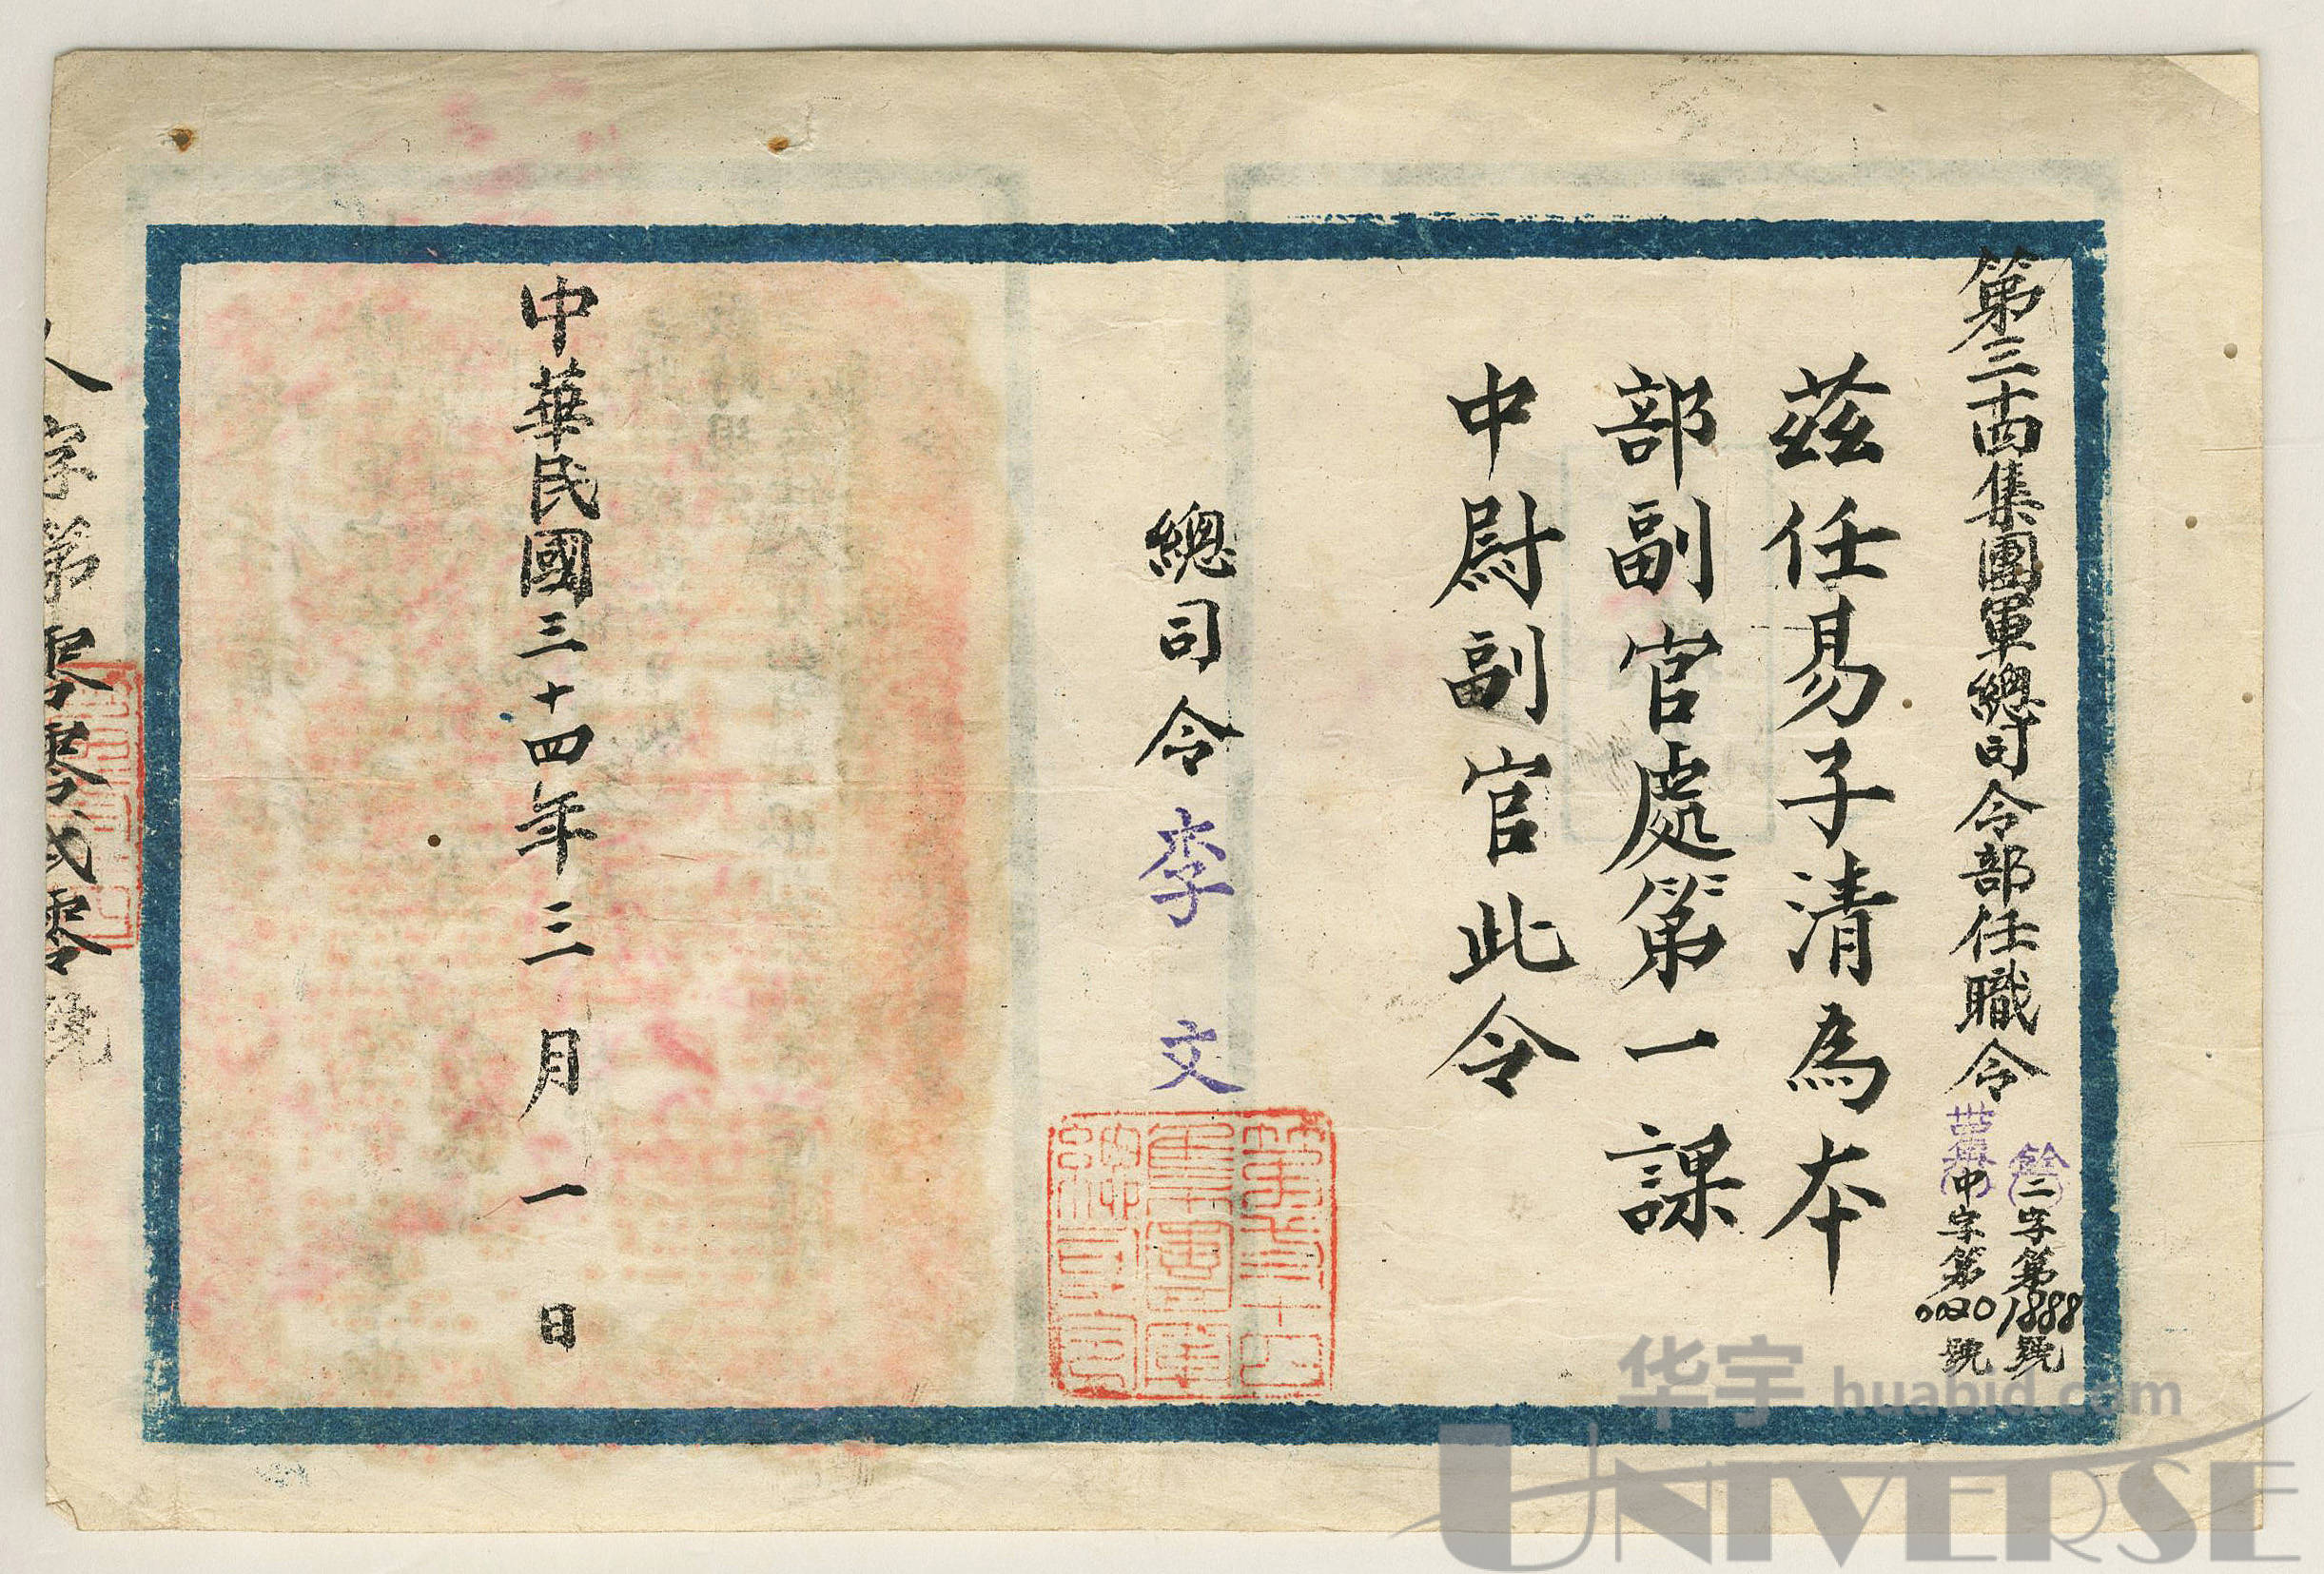 第三十四集團軍總司令部任職令
二字第1888號
中字第0020號
茲任易子清為本
部副官處第一課
中尉副官此令
總司令李文
中華民國三十四年三月一日
字第零零弍零號
华宇 huabid.com
UNIVERSE